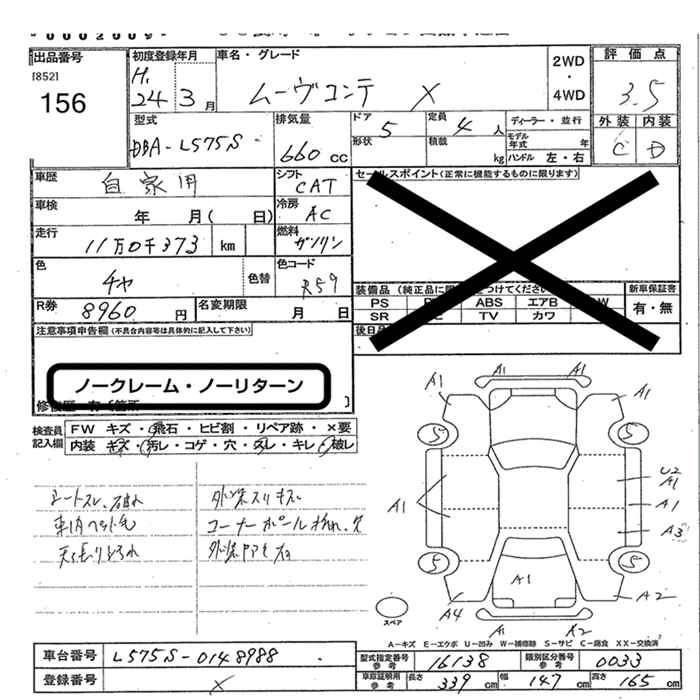 出品番号
[852]
156
初度登録年月
H.
24 3 月
車名・グレード
ムーヴコンテ X
2WD
・
4WD
評価点
3.5
外装 内装
C D
型式
DBA-L575S
排気量
660 cc
ドア 5
形状
定員 4 人
積載 kg
ディーラー・並行
モデル年式 年
ハンドル 左・右
車歴 自家用
シフト CAT
車検 年 月( 日)
冷房 AC
走行 11万0千373 km
燃料 ガソリン
色 チャ
色替
色コード R59
R券 8960 円
名変期限 月 日
セールスポイント(正常に機能するものに限ります)
PS ABS エアB W
SR TV カワ
新車保証書
有・無
後日
注意事項申告欄(不具合内容等は具体的に記入して下さい)
ノークレーム・ノーリターン
検査員記入欄
FW キズ・飛石・ヒビ割・リペア跡・×要
内装 キズ・汚レ・コゲ・穴・スレ・キレ・破レ
シートスレ、破れ
外装スリキズ
コーナーポール折れ、欠
A1 A1
A1 A1
5 5
A1
U2
A1
A1
A3
5 5
A1
A4 A2
A1 A2
スペア
A-キズ E-エクボ U-凹み W-補修跡 S-サビ C-腐食 XX-交換済
車台番号 L575S-0148988
登録番号 X
型式指定番号 参考 16138
類別区分番号 参考 0033
車庫証明用 参考 長さ 339 cm 幅 147 cm 高さ 165 cm